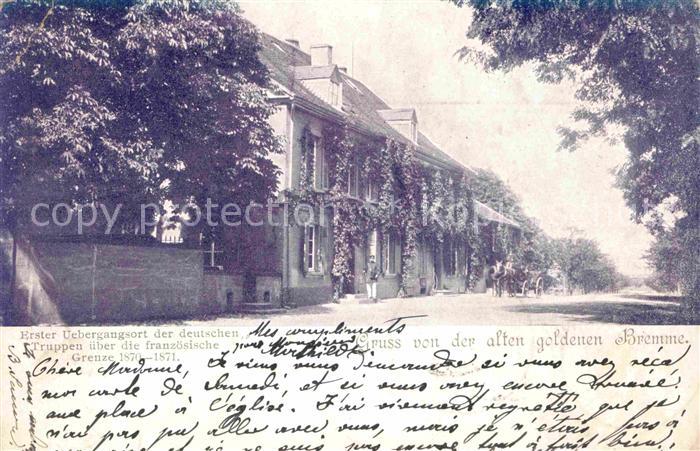 copy protected
Erster Uebergangsort der deutschen
Truppen über die französische
Grenze 1870–1871.
Gruss von der alten goldenen Bremme.
Mes compliments
pour Monsieur
Mathild
Chère Madame, Je viens vous demander si vous avez reçu
ma carte de Samedi, et si vous avez encore trouvé
une place à l'église. J'ai vivement regretté que je
n'ai pas pu aller avec vous, mais je n'étais pas à
et je ne suis pas encore tout à fait bien,